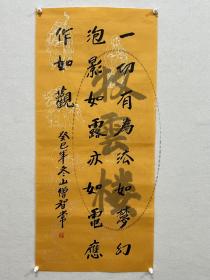 一切有為法如夢幻
泡影如露亦如電應
作如觀
癸巳年冬山僧智常
雲楼